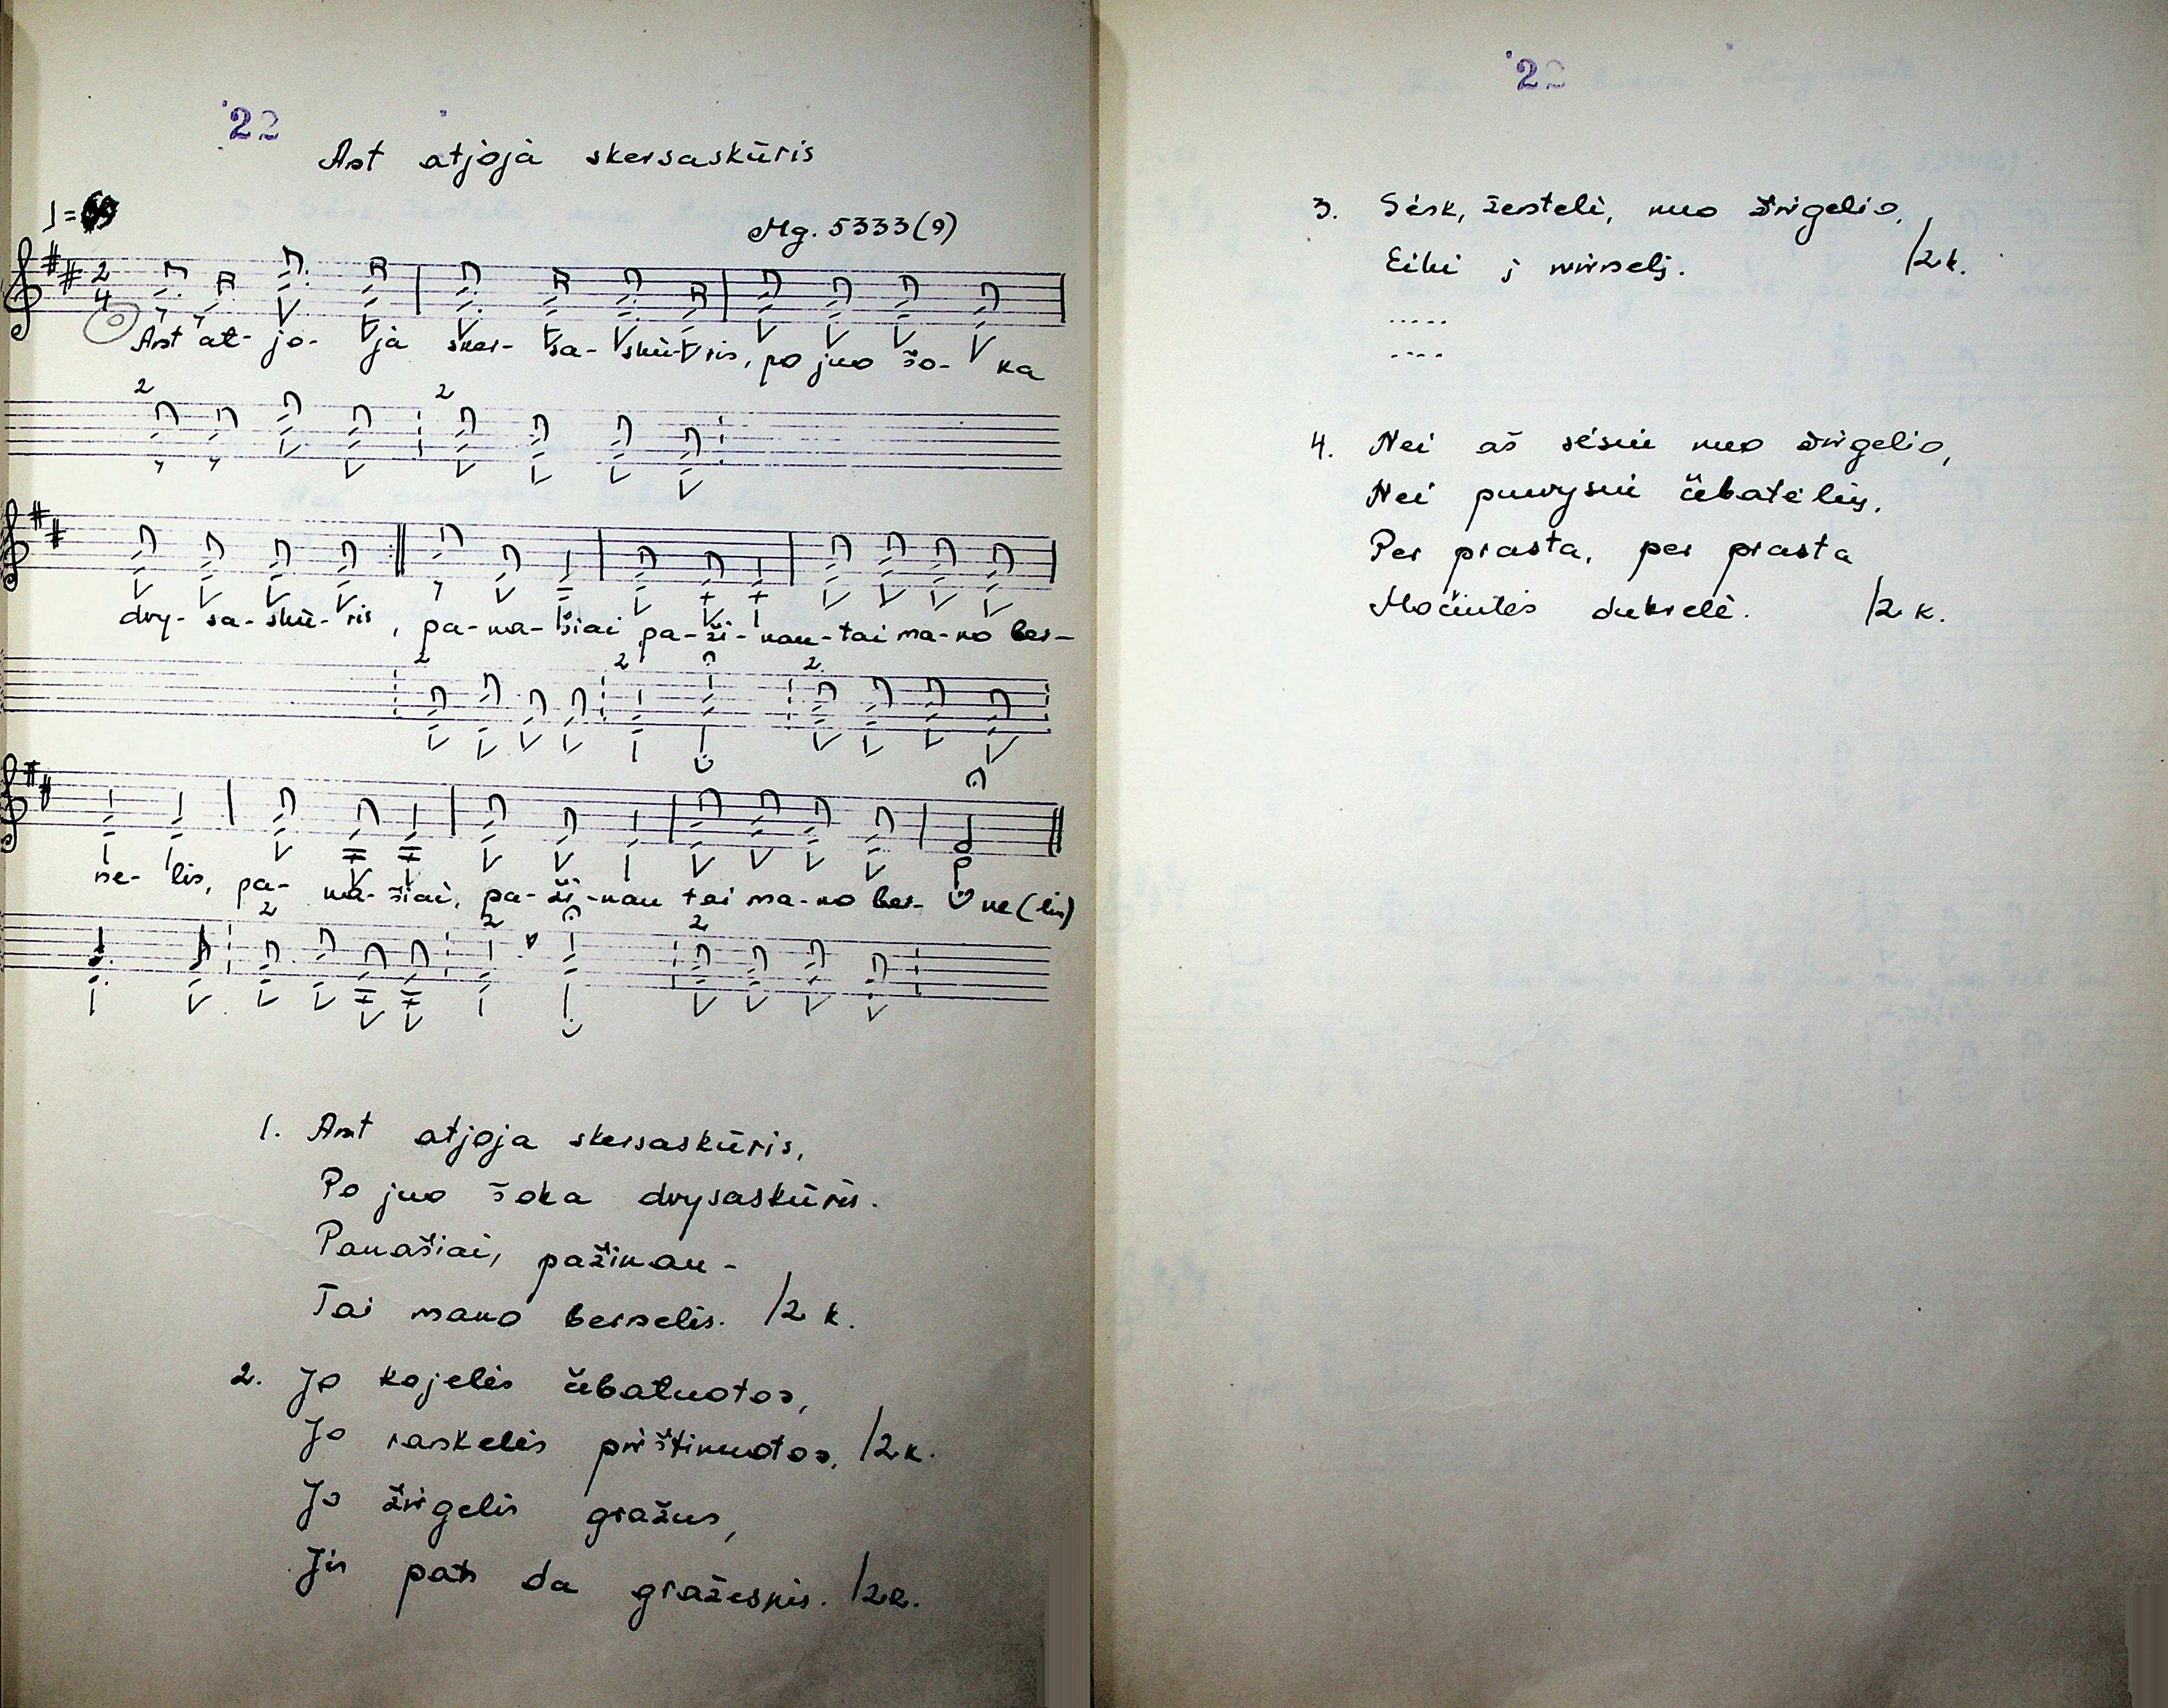 22
Ant atjoja skersaskūris
Mg. 5333(9)
2
4
Ant at- jo- ja sker- sa- skū- ris, po juo šo- ka
2 2
dvy- sa- skū- ris, pa-na-šiai pa-ži-nau-tai ma-no ber-
2 2 2
ne- lis, pa- na-šiai, pa-ži-nau tai ma-no ber- ne(lis)
2 2 2
1. Ant atjoja skersaskūris,
Po juo šoka dvysaskūris.
Panašiai, pažinau -
Tai mano bernelis. /2 k.
2. Jo kojelės čebatuotos,
Jo rankelės pirštinuotos, /2 k.
Jo žirgelis gražus,
Jis pats da gražesnis. /2k.
22
3. Sėsk, ženteli, nuo žirgelio,
Eiki į svirnelį. /2 k.
.....
....
4. Nei aš sėsiu nuo žirgelio,
Nei purvysiu čebatėlių,
Per prasta, per prasta
Močiutės dukrelė. /2 k.